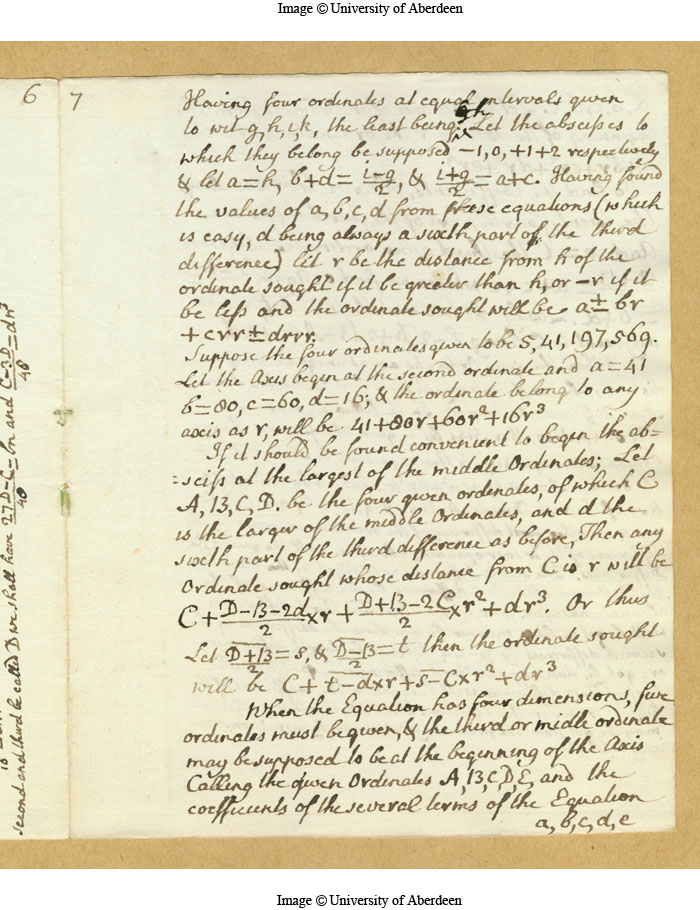 Image © University of Aberdeen
6
second and third be called D we shall have 27D-C/48 = bn and C-3D/48 = dn³
7
Having four ordinates at equal intervals given
to wit g, h, i, k, the least being g. Let the abscisses to
which they belong be supposed -1, 0, +1 +2 respectively
& let a=h, b+d= i-g/2, & i+g/2 = a+c. Having found
the values of a, b, c, d from these equations (which
is easy, d being always a sixth part of the third
difference) let r be the distance from h of the
ordinate sought if it be greater than h, or -r if it
be less and the ordinate sought will be a ± br
+ crr ± drrr.
Suppose the four ordinates given to be 5, 41, 197, 569.
Let the Axis begin at the second ordinate and a=41
b=80, c=60, d=16; & the ordinate belong to any
axis as r, will be 41+80r+60r²+16r³
If it should be found convenient to begin the ab=
=sciss at the largest of the middle Ordinates; Let
A, B, C, D. be the four given ordinates, of which C
is the larger of the middle Ordinates, and d the
sixth part of the third difference as before, Then any
Ordinate sought whose distance from C is r will be
C + D-B-2d/2 × r + D+B-2C/2 × r² + dr³. Or thus
Let D+B/2 = s, & D-B/2 = t then the ordinate sought
will be C + t-d×r + s-C×r² + dr³
When the Equation has four dimensions, five
ordinates must be given, & the third or midle ordinate
may be supposed to be at the beginning of the Axis
Calling the given Ordinates A, B, C, D, E, and the
coefficients of the several terms of the Equation
a, b, c, d, e
Image © University of Aberdeen